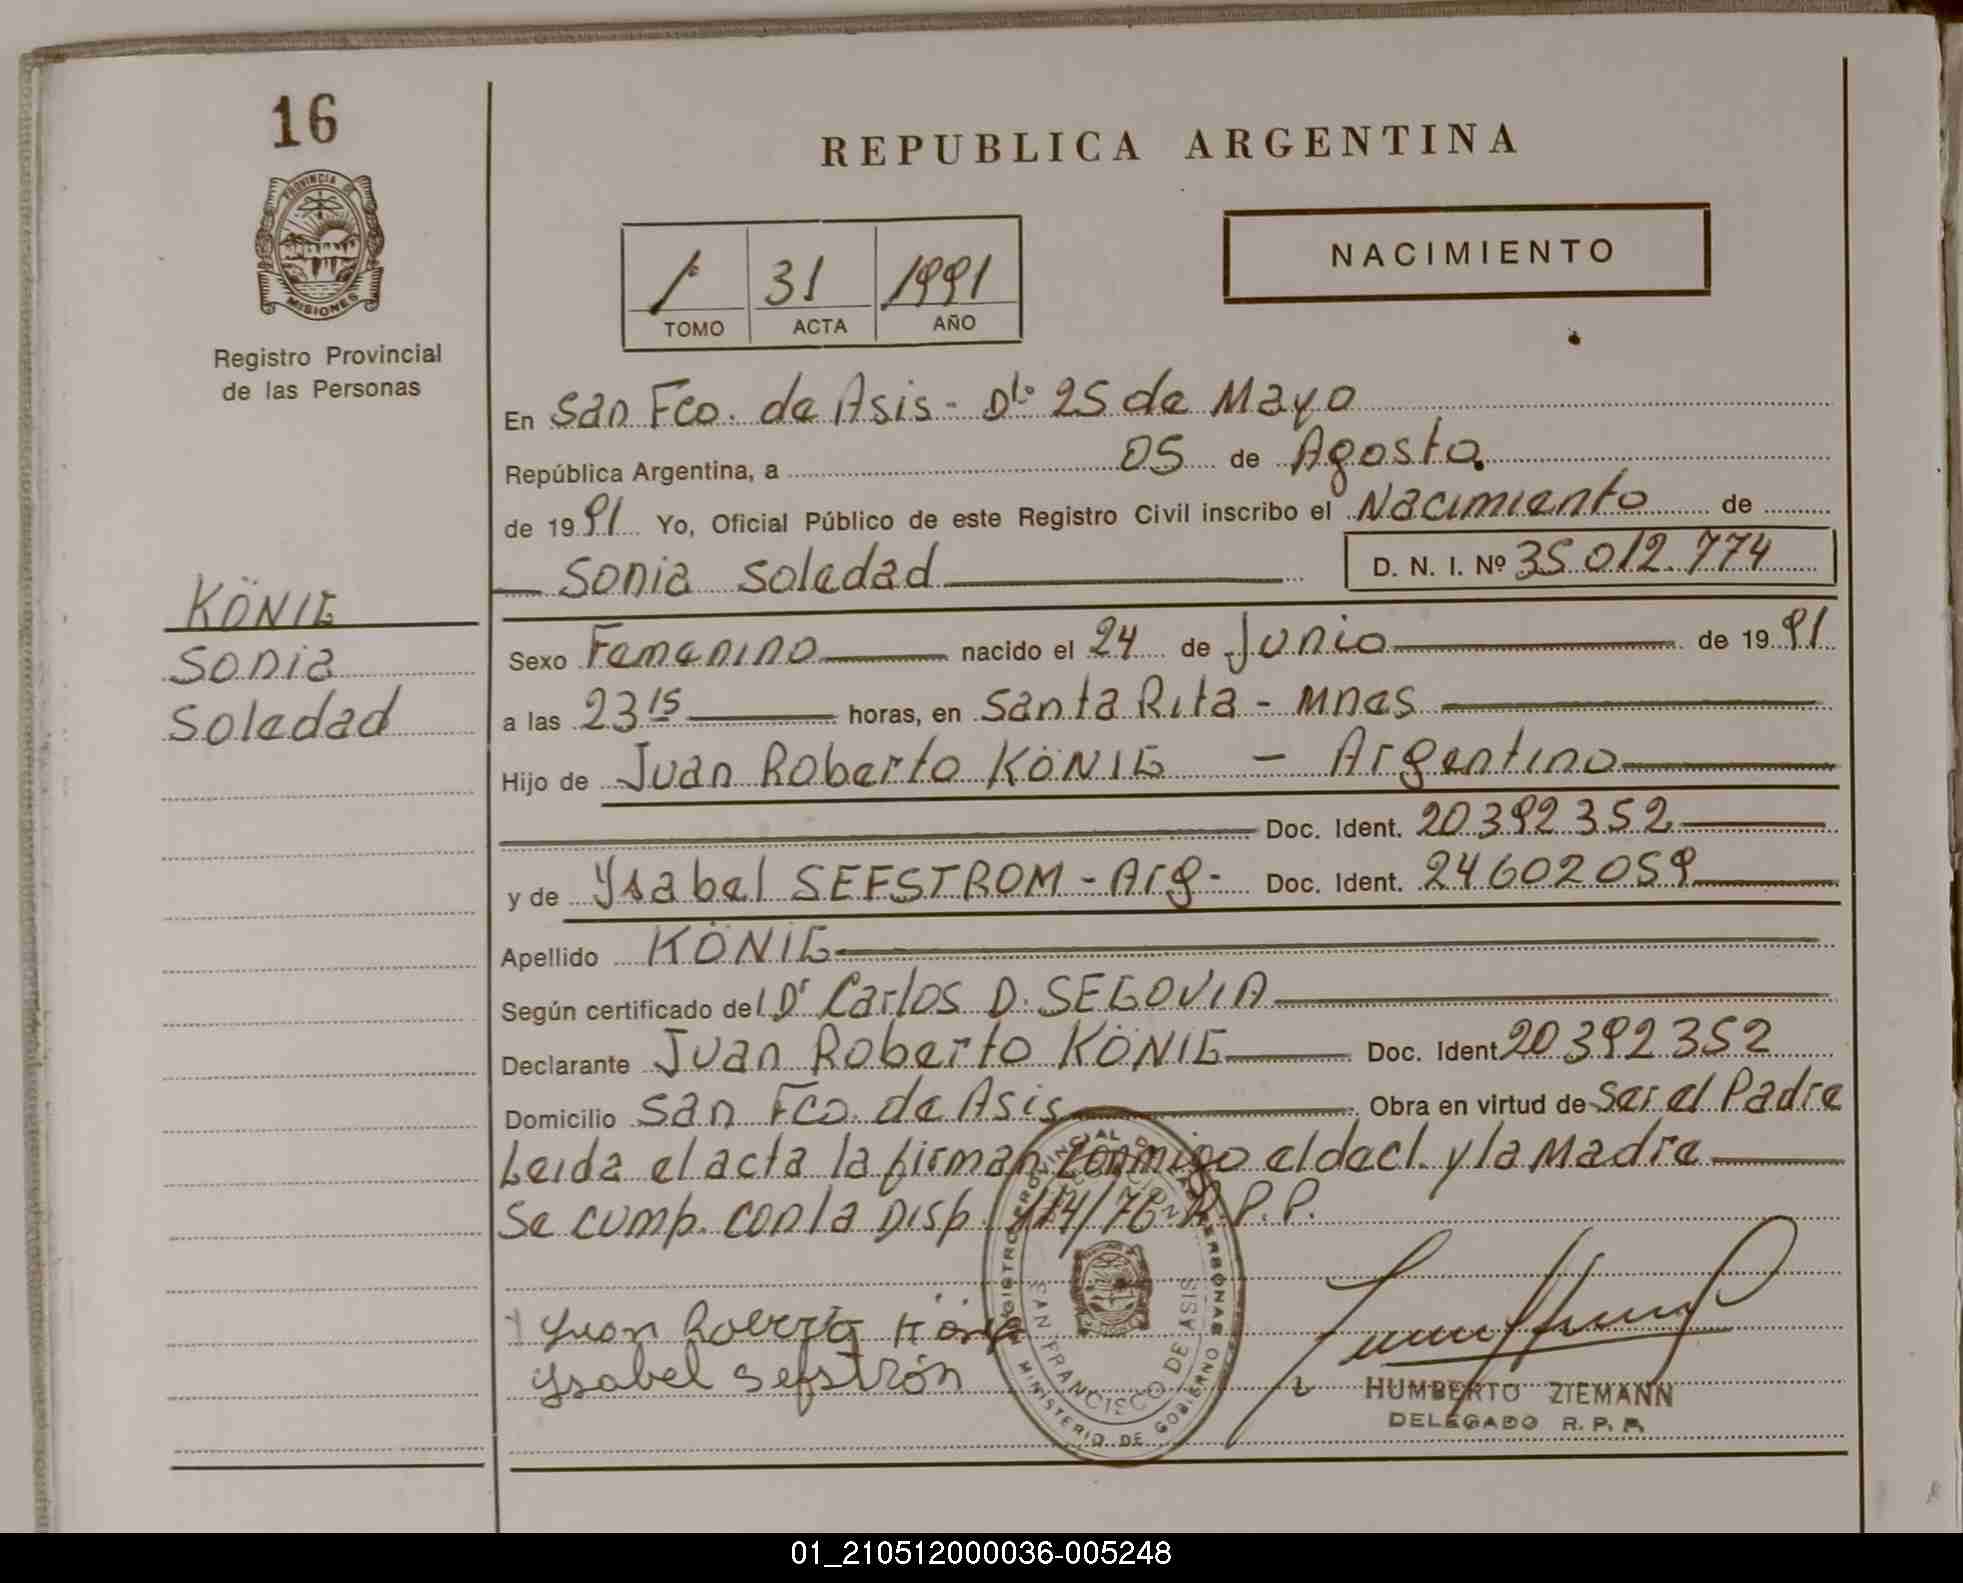 16
PROVINCIA DE
MISIONES
Registro Provincial
de las Personas
KÖNIG
Sonia
Soledad
REPUBLICA ARGENTINA
1º 31 1991
TOMO ACTA AÑO
NACIMIENTO
En San Fco. de Asis - Dto 25 de Mayo
República Argentina, a 05 de Agosto
de 1991 Yo, Oficial Público de este Registro Civil inscribo el Nacimiento de
Sonia Soledad D. N. I. Nº 35.012.774
Sexo Femenino nacido el 24 de Junio de 1991
a las 23 15 horas, en Santa Rita - Mnes
Hijo de Juan Roberto KÖNIG - Argentino
Doc. Ident. 20392352
y de Ysabel SEFSTROM - Arg - Doc. Ident. 24602059
Apellido KÖNIG
Según certificado del Dr Carlos D. SEGOVIA
Declarante Juan Roberto KÖNIG Doc. Ident 20392352
Domicilio San Fco. de Asis Obra en virtud de Ser el Padre
Leida el acta la firman conmigo el decl. y la Madre
Se cump. con la Disp. 114/76 R.P.P.
Juan Roberto König
Ysabel Sefstrón
REGISTRO PROVINCIAL DE LAS PERSONAS
SAN FRANCISCO DE ASIS
MINISTERIO DE GOBIERNO
HUMBERTO ZIEMANN
DELEGADO R. P. P.
01_210512000036-005248